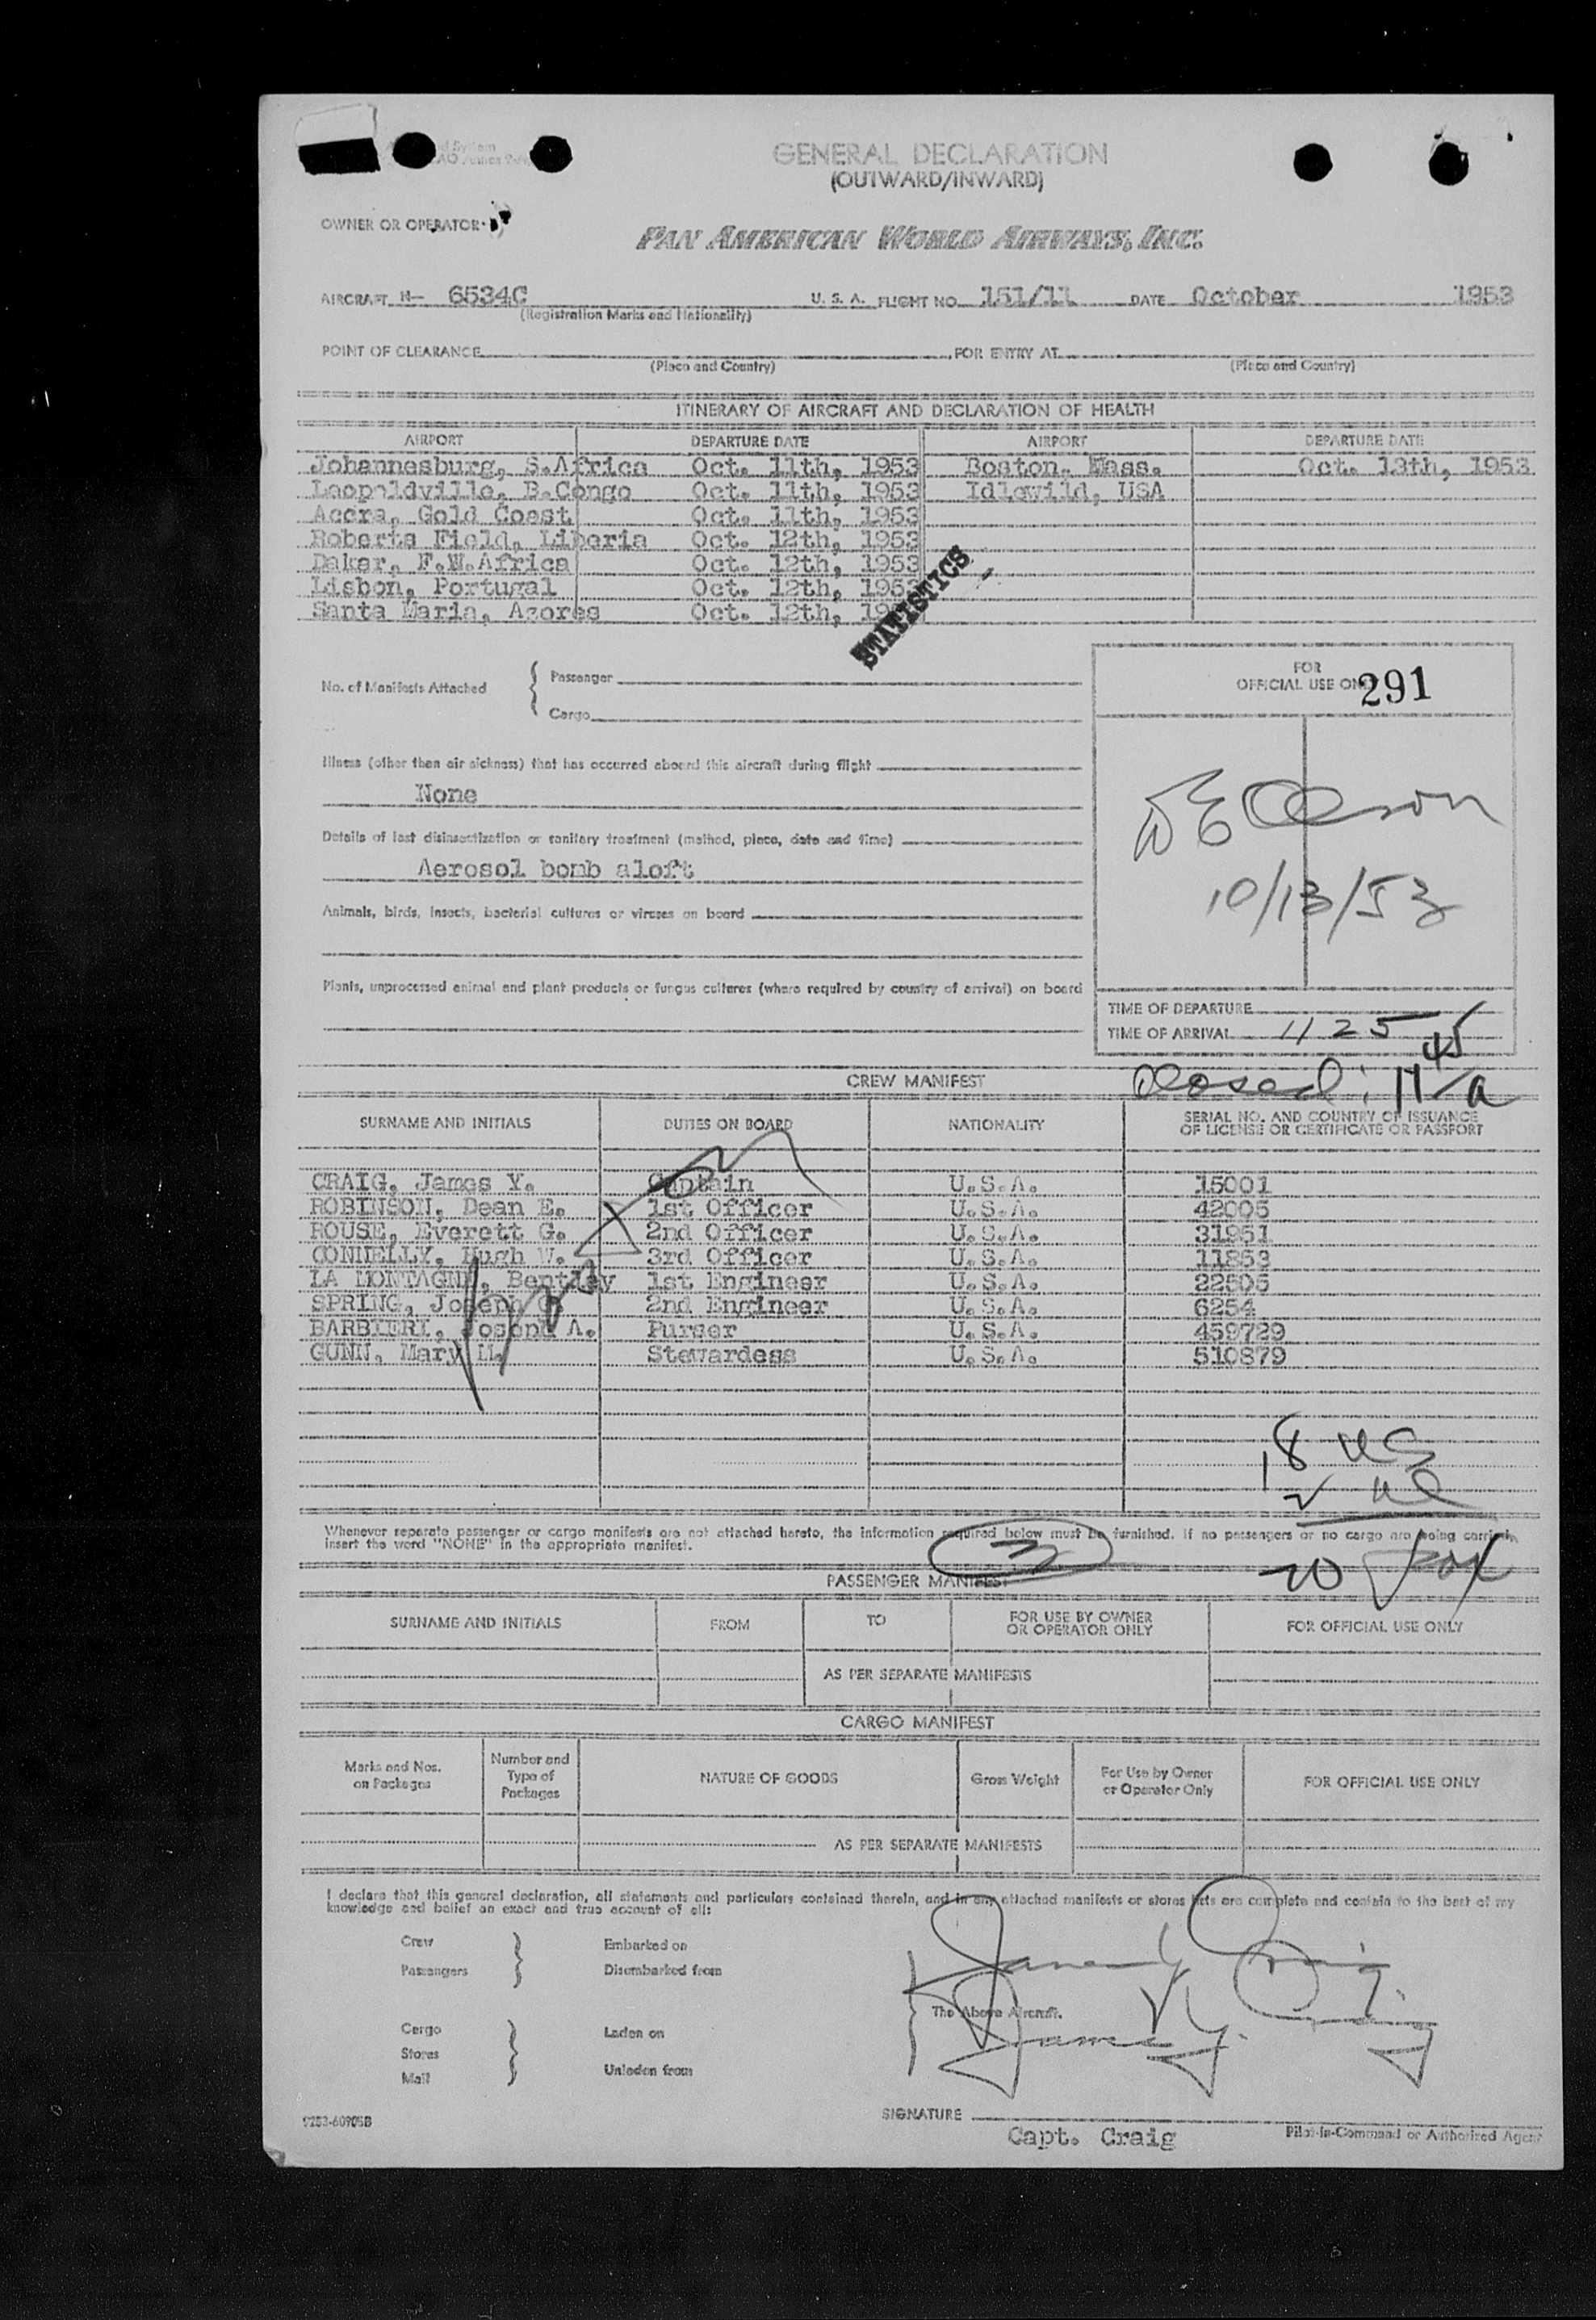 GENERAL DECLARATION
(OUTWARD/INWARD)
OWNER OR OPERATOR
PAN AMERICAN WORLD AIRWAYS, INC.
AIRCRAFT N- 6534C U. S. A. FLIGHT NO. 151/11 DATE October 1953
(Registration Marks and Nationality)
POINT OF CLEARANCE FOR ENTRY AT
(Place and Country) (Place and Country)
ITINERARY OF AIRCRAFT AND DECLARATION OF HEALTH
AIRPORT DEPARTURE DATE AIRPORT DEPARTURE DATE
Johannesburg, S.Africa Oct. 11th, 1953 Boston, Mass. Oct. 13th, 1953
Leopoldville, B.Congo Oct. 11th, 1953 Idlewild, USA
Accra, Gold Coast Oct. 11th, 1953
Roberts Field, Liberia Oct. 12th, 1953
Dakar, F.W.Africa Oct. 12th, 1953
Lisbon, Portugal Oct. 12th, 1953
Santa Maria, Azores Oct. 12th, 1953
STATISTICS
FOR
OFFICIAL USE ONLY 291
No. of Manifests Attached
Passenger
Cargo
Illness (other than air sickness) that has occurred aboard this aircraft during flight
None
Details of last disinsectization or sanitary treatment (method, place, date and time)
Aerosol bomb aloft
10/13/53
Animals, birds, insects, bacterial cultures or viruses on board
Plants, unprocessed animal and plant products or fungus cultures (where required by country of arrival) on board
TIME OF DEPARTURE
TIME OF ARRIVAL 1125
Closed: 11 45 a
CREW MANIFEST
SURNAME AND INITIALS DUTIES ON BOARD NATIONALITY SERIAL NO. AND COUNTRY OF ISSUANCE
OF LICENSE OR CERTIFICATE OR PASSPORT
CRAIG, James Y. Captain U.S.A. 15001
ROBINSON, Dean E. 1st Officer U.S.A. 42005
ROUSE, Everett G. 2nd Officer U.S.A. 31951
CONNELLY, Hugh W. 3rd Officer U.S.A. 11853
LA MONTAGNE, Bentley 1st Engineer U.S.A. 22505
SPRING, Joseph 2nd Engineer U.S.A. 6254
BARBIERI, Joseph A. Purser U.S.A. 459729
GUNN, Mary M. Stewardess U.S.A. 510879
18
2
Whenever separate passenger or cargo manifests are not attached hereto, the information required below must be furnished. If no passengers or no cargo are being carried,
insert the word "NONE" in the appropriate manifest.
3
20 pax
PASSENGER MANIFEST
SURNAME AND INITIALS FROM TO FOR USE BY OWNER
OR OPERATOR ONLY FOR OFFICIAL USE ONLY
AS PER SEPARATE MANIFESTS
CARGO MANIFEST
Marks and Nos.
on Packages Number and
Type of
Packages NATURE OF GOODS Gross Weight For Use by Owner
or Operator Only FOR OFFICIAL USE ONLY
AS PER SEPARATE MANIFESTS
I declare that this general declaration, all statements and particulars contained therein, and in any attached manifests or stores lists are complete and contain to the best of my
knowledge and belief an exact and true account of all:
Crew Embarked on
Passengers Disembarked from
James Y Craig
The Above Aircraft.
James Y. Craig
Cargo Laden on
Stores
Mail Unladen from
SIGNATURE
9253-60905B
Capt. Craig Pilot-in-Command or Authorized Agent